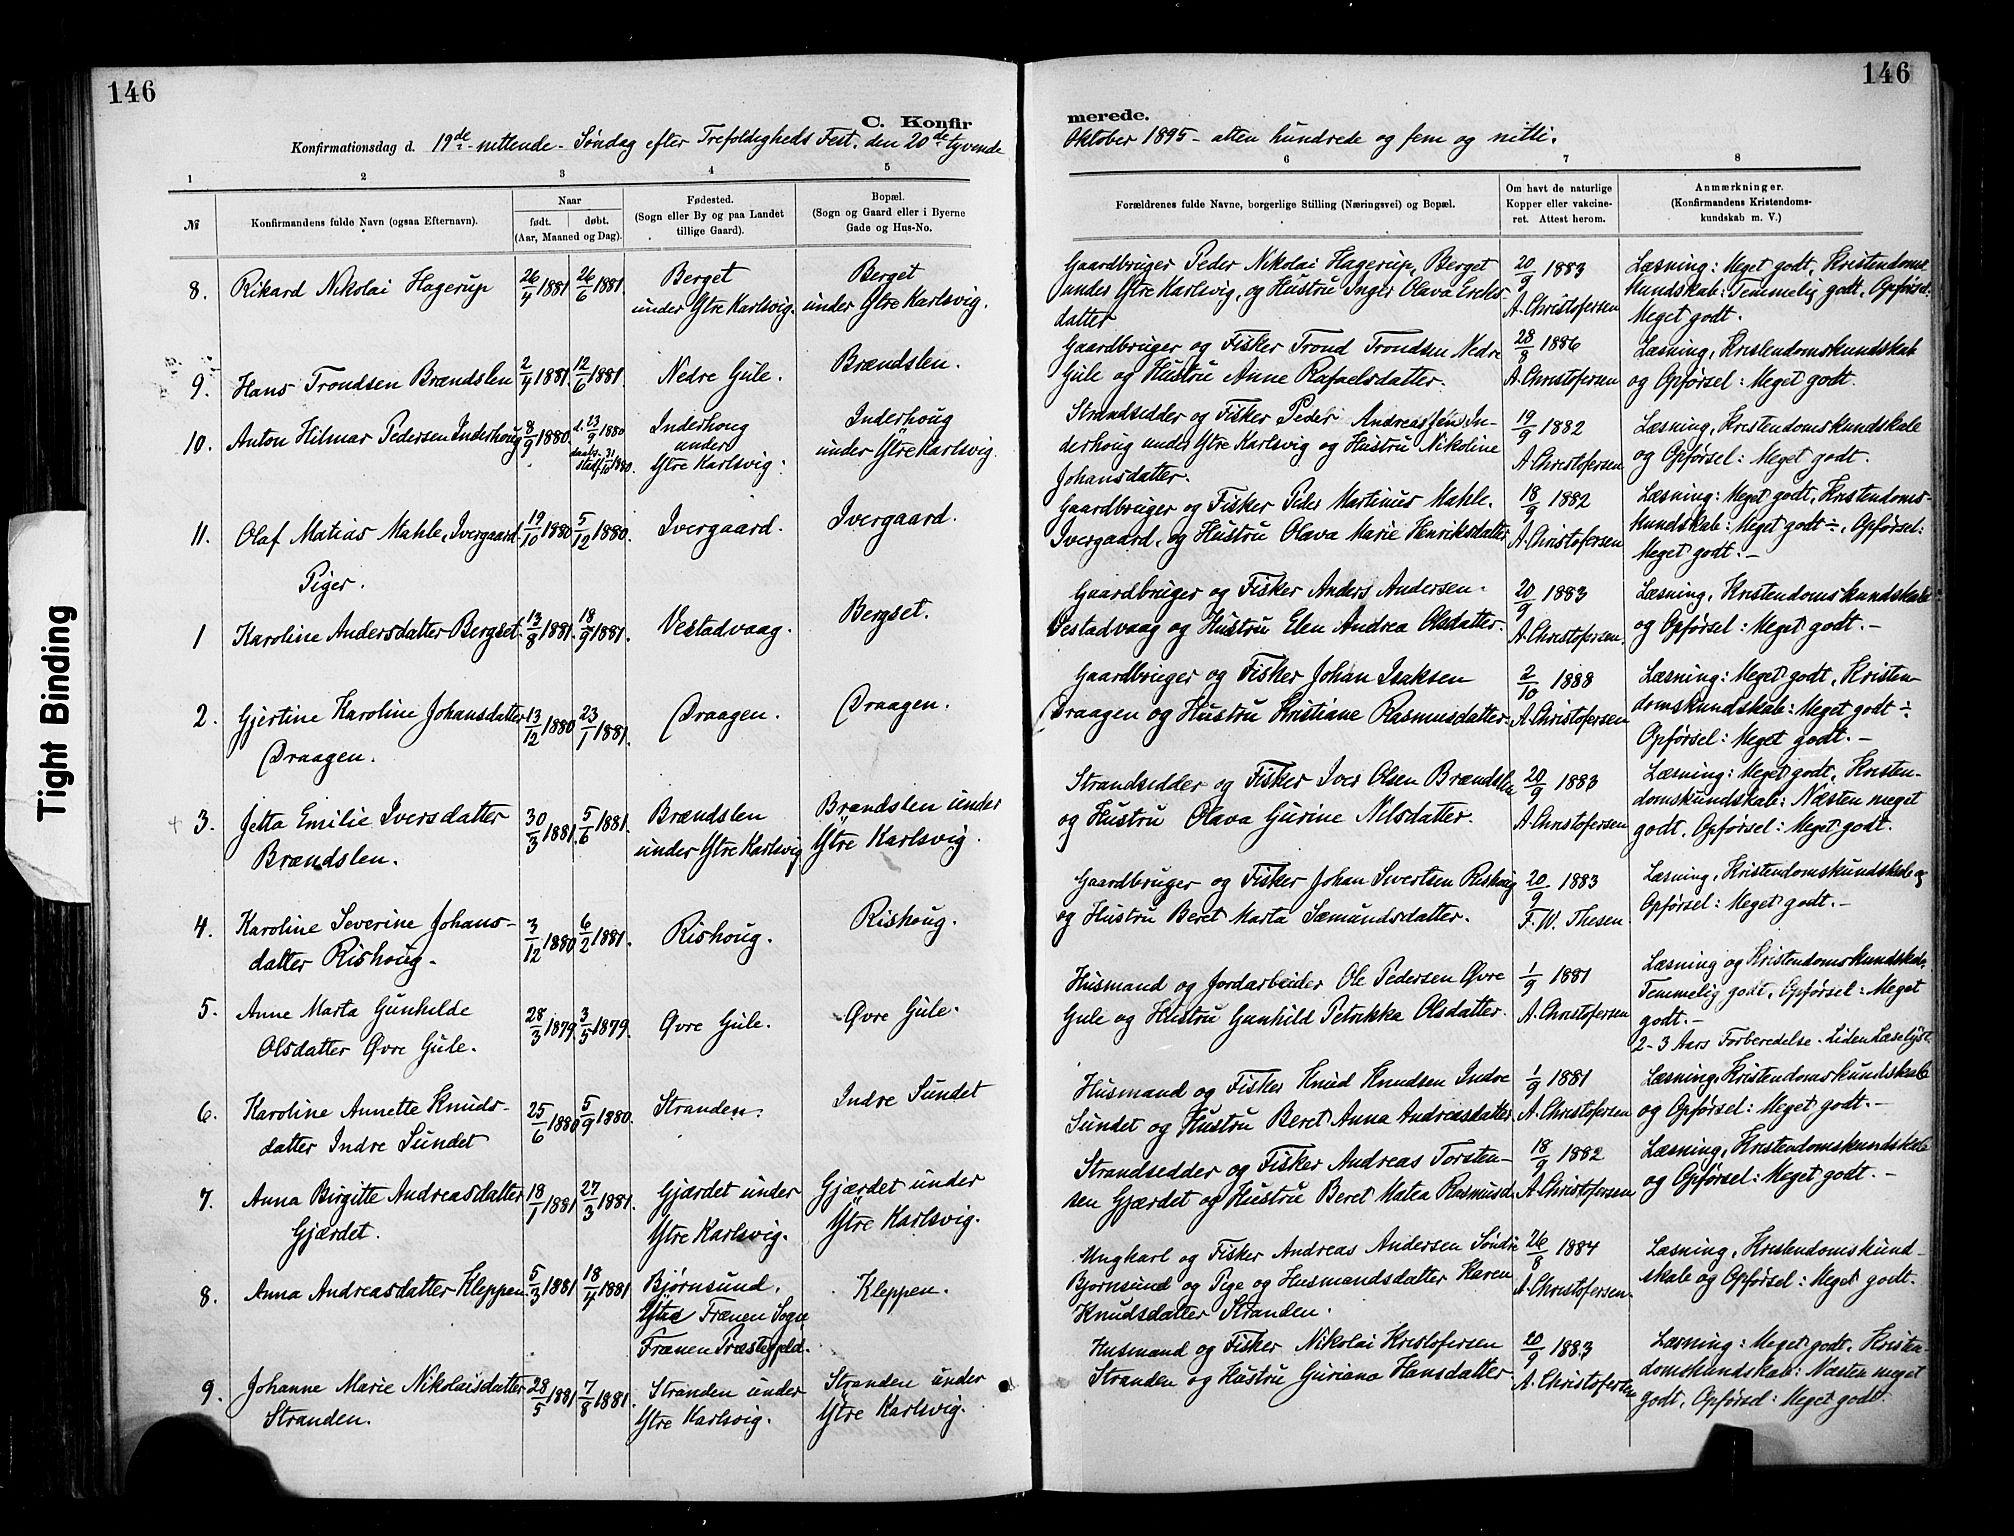 146
146
C. Konfir
merede.
Konfirmationsdag d. 19de nittende - Søndag efter Trefoldigheds Fest. den 20de tyvende
Oktober 1895 - atten hundrede og fem og nitti.
1 2 3 4 5
6 7 8
№
Konfirmandens fulde Navn (ogsaa Efternavn).
Naar
født. døbt.
(Aar, Maaned og Dag).
Fødested.
(Sogn eller By og paa Landet
tillige Gaard).
Bopæl.
(Sogn og Gaard eller i Byerne
Gade og Hus-No.
Forældrenes fulde Navne, borgerlige Stilling (Næringsvei) og Bopæl.
Om havt de naturlige
Kopper eller vakcine-
ret. Attest herom.
Anmærkninger.
(Konfirmandens Kristendoms-
kundskab m. V.)
8. Rikard Nikolai Hagerup 26/4 1881 26/6 1881.
Berget
under Ytre Karlsvig.
Berget
under Ytre Karlsvig.
Gaardbruger Peder Nikolai Hagerup, Berget
under Ytre Karlsvig, og Hustru Inger Olava Ereks-
datter
20/9 1883
A. Christofersen
Læsning: Meget godt, Kristendoms-
kundskab: Temmelig godt, Opførsel:
Meget godt.
9. Hans Trondsen Brændslen 2/4 1881. 12/6 1881.
Nedre Gule.
Brændslen.
Gaardbruger og Fisker Trond Trondsen Nedre
Gule og Hustru Anne Rafaelsdatter.
28/8 1886
A. Christofersen
Læsning, Kristendomskundskab
og Opførsel: Meget godt.
10. Anton Hilmar Pedersen Inderhoug 8/9 1880. 23/9 1880
Inderhoug
under
Ytre Karlsvig:
Inderhoug
under Ytre Karlsvig.
Strandsidder og Fisker Peder Andreassen, In-
derhoug under Ytre Karlsvig og Hustru Nikoline
Johansdatter.
19/9 1882
A. Christofersen
Læsning, Kristendomskundskab
og Opførsel: Meget godt.
11. Olaf Matias Mahle, Ivergaard 19/10 1880 5/12 1880.
Ivergaard.
Ivergaard.
Gaardbruger og Fisker Peder Martinus Mahle.
Ivergaard, og Hustru Olava Marie Henriksdatter
18/9 1882
A. Christofersen
Læsning: Meget godt, Kristendoms-
kundskab: Meget godt ÷, Opførsel:
Meget godt. -
Piger.
1 Karoline Andersdatter Bergset. 13/8 1881. 18/9 1881.
Vestadvaag.
Bergset.
Gaardbruger og Fisker Anders Andersen
Vestadvaag og Hustru Elen Andrea Olsdatter.
20/9 1883
A. Christofersen.
Læsning, Kristendomskundskab
og Opførsel: Meget godt. -
2. Gjertine Karoline Johansdatter
Draagen.
13/12 1880 23/1 1881.
Draagen.
Draagen.
Gaardbruger og Fisker Johan Isaksen
Draagen og Hustru Kristiane Rasmusdatter.
2/10 1888
A. Christofersen
Læsning: Meget godt, Kristen-
domskundskab: Meget godt ÷.
Opførsel: Meget godt. -
3. Jetta Emilie Iversdatter
Brændslen.
30/3 1881. 5/6 1881.
Brændslen
under Ytre Karlsvig
Brændslen under
Ytre Karlsvig.
Strandsidder og Fisker Iver Olsen Brændslen
og Hustru Olava Gurine Nilsdatter.
20/9 1883
A. Christofersen
Læsning: Meget godt, Kristen-
domskundskab: Næsten meget
godt, Opførsel: Meget godt.
4. Karoline Severine Johans-
datter Rishoug.
3/12 1880 6/2 1881.
Rishoug.
Rishoug.
Gaardbruger og Fisker Johan Sivertsen Rishoug
og Hustru Beret Marta Sæmundsdatter.
20/9 1883
F. W. Thesen
Læsning, Kristendomskundskab og
Opførsel: Meget godt. -
5. Anne Marta Gunhilde
Olsdatter Øvre Gule.
28/3 1879. 3/5 1879.
Øvre Gule.
Øvre Gule.
Husmand og Jordarbeider Ole Pedersen Øvre
Gule og Hustru Gunhild Petrikka Olsdatter.
1/9 1881
A. Christofersen
Læsning og Kristendomskundskab,
Temmelig godt, Opførsel: Meget
godt. -
2-3 Aars Forberedelse. Liden Læselyst.
6. Karoline Annette Knuds-
datter Indre Sundet
25/6 1880 5/9 1880.
Stranden.
Indre Sundet
Husmand og Fisker Knud Knudsen Indre
Sundet og Hustru Beret Anna Andreasdatter
1/9 1881
A. Christofersen
Læsning, Kristendomskundskab
og Opførsel: Meget godt. -
7. Anna Birgitte Andreasdatter
Gjærdet.
18/1 1881 27/3 1881.
Gjærdet under
Ytre Karlsvig.
Gjærdet under
Ytre Karlsvig.
Strandsidder og Fisker Andreas Torsten-
sen Gjærdet og Hustru Beret Matea Rasmusd.
18/9 1882
A. Christofersen
Læsning, Kristendomskundskab
og Opførsel: Meget godt. -
8. Anna Andreasdatter Kleppen. 5/3 1881 18/4 1881
Bjørnsund.
Ytre Frænen Sogn
Frænen Præstegjeld.
Kleppen.
Ungkarl og Fisker Andreas Andersen Søndre
Bjornsund og Pige og Husmandsdatter Karen
Knudsdatter Stranden.
26/8 1884
A. Christofersen.
Læsning, Kristendomskund-
skab og Opførsel: Meget godt.
9. Johanne Marie Nikolaisdatter
Stranden.
28/5 1881 7/8 1881.
Stranden under
Ytre Karlsvig.
Stranden under
Ytre Karlsvig.
Husmand og Fisker Nikolai Kristofersen
Stranden og Hustru Guriana Hansdatter
20/9 1883
A. Christofersen
Læsning: Meget godt, Kristen-
domskundskab: Næsten meget
godt, Opførsel: Meget godt.
Tight Binding